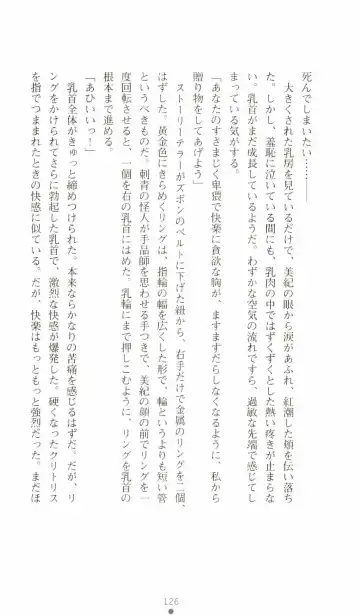 死んでしまいたい………
　大きくされた乳房を見ているだけで、美紀の眼から涙があふれ、紅潮した頬を伝い落ち
た。しかし、羞恥に泣いている間にも、乳肉の中ではずくずくとした熱い疼きが止まらな
い。乳首がまだ成長しているようだ。わずかな空気の流れですら、過敏な先端で感じてし
まっている気がする。
「あなたのすさまじく卑猥で快楽に貪欲な胸が、ますますだらしなくなるように、私から
贈り物をしてあげよう」
　ストーリーテラーがズボンのベルトに下げた紐から、右手だけで金属のリングを二個、
はずした。黄金色にきらめくリングは、指輪の幅を広くした形で、輪というよりも短い管
というべきものだ。刺青の怪人が手品師を思わせる手つきで、美紀の顔の前でリングを一
度回転させると、一個を右の乳首にはめた。乳輪にまで押しこむように、リングを乳首の
根本まで進める。
「あひいいっ！」
　乳首全体がきゅっと締めつけられた。本来ならかなりの苦痛を感じるはずだ。だが、リ
ングをかけられてさらに勃起した乳首で、激烈な快感が爆発した。硬くなったクリトリス
を指でつままれたときの快感に似ている。だが、快楽はもっともっと強烈だった。まだほ
126